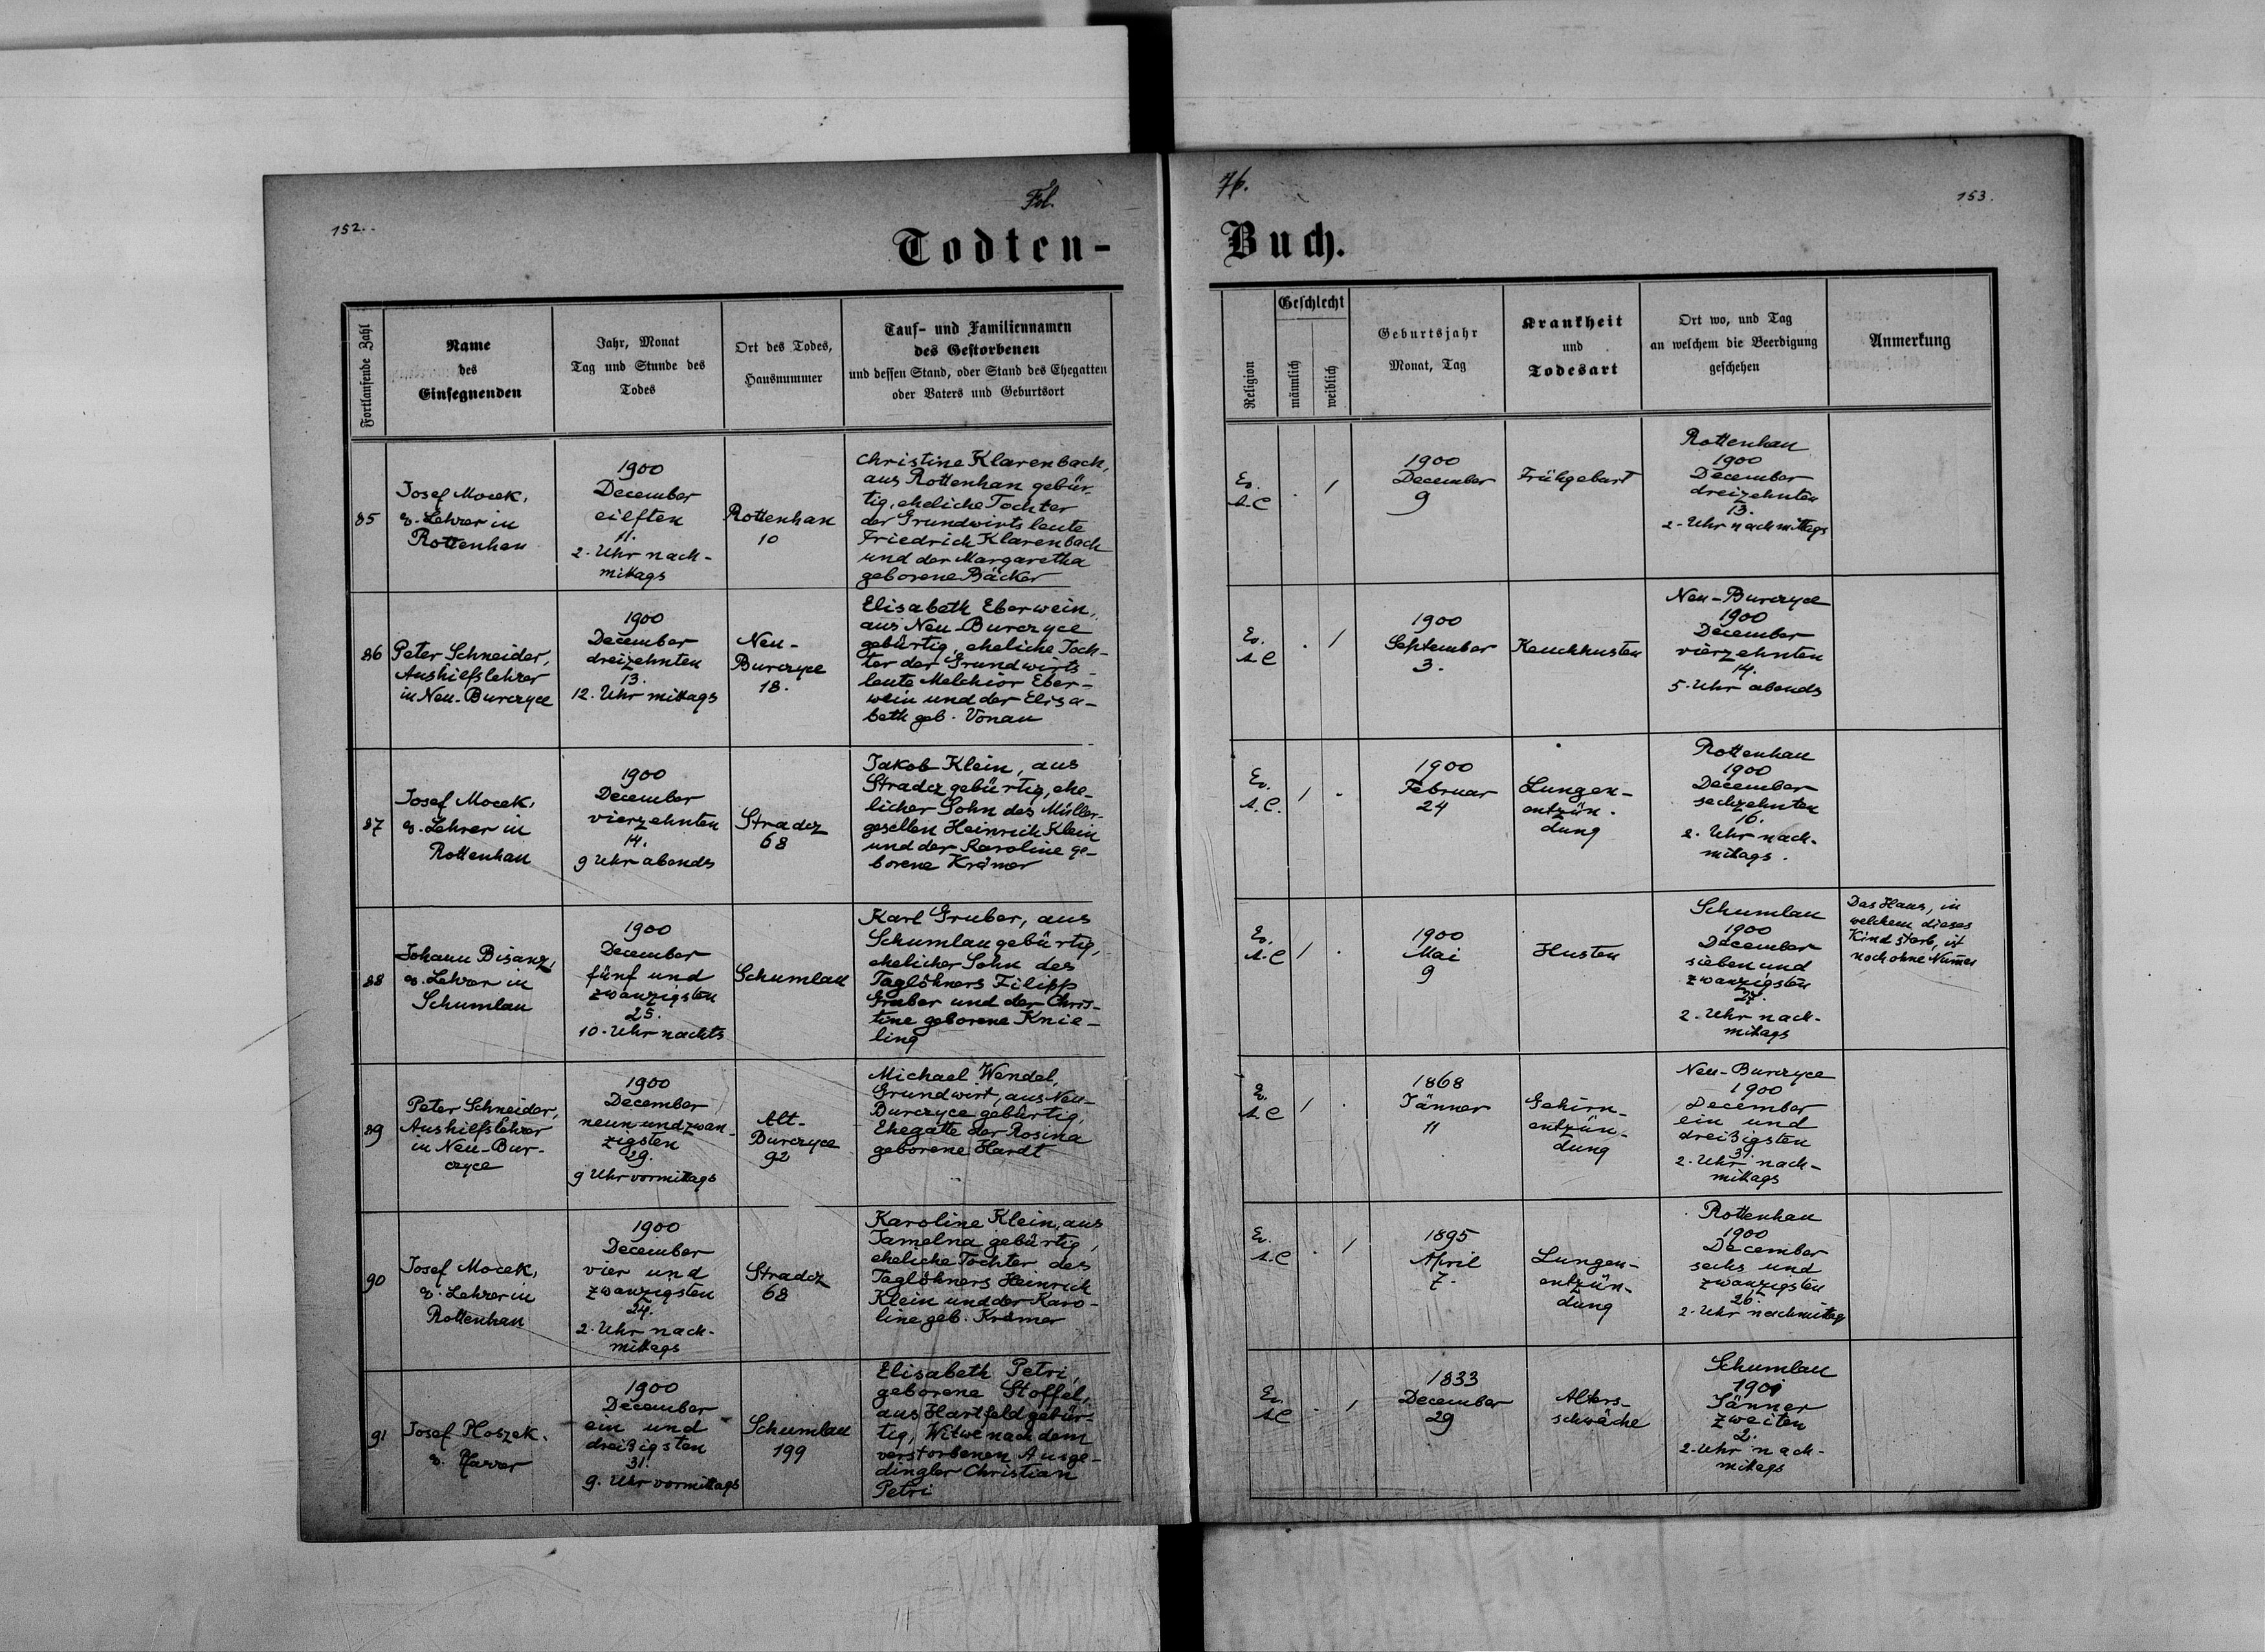 152.
Fol.
76.
153.
Todten-
Buch.
Fortlaufende Zahl
Name
des
Einsegnenden
Jahr, Monat
Tag und Stunde des
Todes
Ort des Todes,
Hausnummer
Tauf- und Familiennamen
des Gestorbenen
und dessen Stand, oder Stand des Ehegatten
oder Vaters und Geburtsort
Religion
Geschlecht
männlich
weiblich
Geburtsjahr
Monat, Tag
Krankheit
und
Todesart
Ort wo, und Tag
an welchem die Beerdigung
geschehen
Anmerkung
85
Josef Mocek,
ev. Lehrer in
Rottenhan
1900
December
eilften
11.
2. Uhr nach-
mittags
Rottenhan
10
Christine Klarenbach,
aus Rottenhan gebür-
tig, eheliche Tochter
der Grundwirtsleute
Friedrich Klarenbach
und der Margaretha
geborene Bäcker
Ev.
A.C
. 1
1900
December
9
Frühgeburt
Rottenhan
1900
December
dreizehnten
13.
2. Uhr nachmittags
86
Peter Schneider,
Aushilfslehrer
in Neu-Burczyce
1900
December
dreizehnten
13.
12. Uhr mittags
Neu-
Burczyce
18.
Elisabeth Eberwein,
aus Neu-Burczyce
gebürtig, eheliche Toch-
ter der Grundwirts-
leute Melchior Eber-
wein und der Elisa-
beth geb. Vonau
Ev.
A C
. 1
1900
September
3.
Keuchhusten
Neu-Burczyce
1900
December
vierzehnten
14.
5. Uhr abends
87
Josef Mocek,
ev. Lehrer in
Rottenhan
1900
December
vierzehnten
14.
9 Uhr abends
Stradcz
68
Jakob Klein, aus
Stradcz gebürtig, ehe-
licher Sohn des Müller-
gesellen Heinrich Klein
und der Karoline ge-
borene Krämer
Ev.
A.C.
1 .
1900
Februar
24
Lungen-
entzün-
dung
Rottenhan
1900
December
sechzehnten
16.
2. Uhr nach-
mittags.
88
Johann Bisanz,
ev. Lehrer in
Schumlau
1900
December
fünf und
zwanzigsten
25.
10. Uhr nachts
Schumlau
Karl Gruber, aus
Schumlau gebürtig,
ehelicher Sohn des
Taglöhners Filipp
Gruber und der Chris-
tine geborene Knie-
ling
Ev.
A.C
1 .
1900
Mai
9
Husten
Schumlau
1900
December
sieben und
zwanzigsten
27.
2. Uhr nach-
mittags
Das Haus, in
welchem dieses
Kind starb, ist
noch ohne Num̄er
89
Peter Schneider,
Aushilfslehrer
in Neu-Bur-
czyce
1900
December
neun und zwan-
zigsten
29.
9 Uhr vormittags
Alt-
Burczyce
92
Michael Wendel,
Grundwirt, aus Neu-
Burczyce gebürtig,
Ehegatte der Rosina
geborene Hardt
Ev.
A.C
1 .
1868
Jänner
11
Gehirn-
entzün-
dung
Neu-Burczyce
1900
December
ein und
dreißigsten
31.
2. Uhr nach-
mittags
90
Josef Mocek,
ev. Lehrer in
Rottenhan
1900
December
vier und
zwanzigsten
24.
2. Uhr nach-
mittags
Stradcz
68
Karoline Klein, aus
Jamelna gebürtig,
eheliche Tochter des
Taglöhners Heinrich
Klein und der Karo-
line geb. Krämer
Ev.
A.C
. 1
1895
April
7.
Lungen-
entzün-
dung
Rottenhan
1900
December
sechs und
zwanzigsten
26.
2. Uhr nachmittag
91
Josef Ploszek.
ev. Pfarrer
1900
December
ein und
dreißigsten
31.
9. Uhr vormittags
Schumlau
199
Elisabeth Petri,
geborene Stoffel,
aus Hartfeld gebür-
tig, Witwe nach dem
verstorbenen Ausge-
dingler Christian
Petri
Ev.
A.C
. 1
1833
December
29
Alters-
schwäche
Schumlau
1901
Jänner
zweiten
2.
2. Uhr nach-
mittags